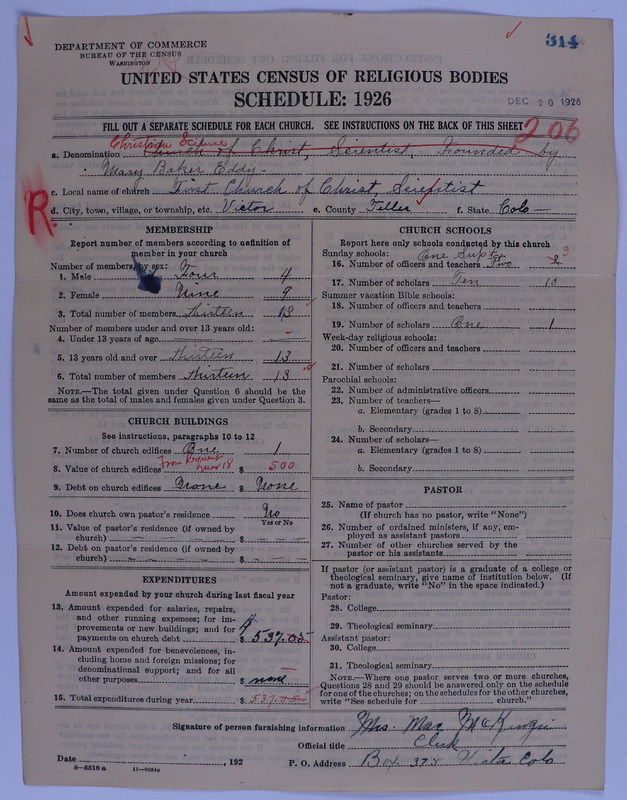 314
DEPARTMENT OF COMMERCE
BUREAU OF THE CENSUS
WASHINGTON
UNITED STATES CENSUS OF RELIGIOUS BODIES
SCHEDULE: 1926
DEC 20 1926
FILL OUT A SEPARATE SCHEDULE FOR EACH CHURCH. SEE INSTRUCTIONS ON THE BACK OF THIS SHEET
206
Christian Science
a. Denomination Church of Christ, Scientist, Founded by
Mary Baker Eddy-
c. Local name of church First Church of Christ, Scientist
d. City, town, village, or township, etc. Victor e. County Teller f. State Colo
R
MEMBERSHIP
Report number of members according to definition of
member in your church
Number of members by sex:
1. Male Four 4
2. Female Nine 9
3. Total number of members Thirteen 13
Number of members under and over 13 years old:
4. Under 13 years of age
5. 13 years old and over Thirteen 13
6. Total number of members Thirteen 13
NOTE.—The total given under Question 6 should be
the same as the total of males and females given under Question 3.
CHURCH BUILDINGS
See instructions, paragraphs 10 to 12
7. Number of church edifices One 1
8. Value of church edifices $ 500
9. Debt on church edifices None $ None
10. Does church own pastor's residence No
Yes or No
11. Value of pastor's residence (if owned by
church) $
12. Debt on pastor's residence (if owned by
church) $
EXPENDITURES
Amount expended by your church during last fiscal year
13. Amount expended for salaries, repairs,
and other running expenses; for im-
provements or new buildings; and for
payments on church debt $ 537.05
14. Amount expended for benevolences, in-
cluding home and foreign missions; for
denominational support; and for all
other purposes $ none
15. Total expenditures during year $ 537.05
CHURCH SCHOOLS
Report here only schools conducted by this church
Sunday schools: One Supt
16. Number of officers and teachers Two 2 3
17. Number of scholars Ten 10
Summer vacation Bible schools:
18. Number of officers and teachers
19. Number of scholars One 1
Week-day religious schools:
20. Number of officers and teachers
21. Number of scholars
Parochial schools:
22. Number of administrative officers
23. Number of teachers—
a. Elementary (grades 1 to 8)
b. Secondary
24. Number of scholars—
a. Elementary (grades 1 to 8)
b. Secondary
PASTOR
25. Name of pastor
(If church has no pastor, write "None")
26. Number of ordained ministers, if any, em-
ployed as assistant pastors
27. Number of other churches served by the
pastor or his assistants
If pastor (or assistant pastor) is a graduate of a college or
theological seminary, give name of institution below. (If
not a graduate, write "No" in the space indicated.)
Pastor:
28. College
29. Theological seminary
Assistant pastor:
30. College
31. Theological seminary
NOTE.—Where one pastor serves two or more churches,
Questions 28 and 29 should be answered only on the schedule
for one of the churches; on the schedules for the other churches,
write "See schedule for church."
Signature of person furnishing information Mrs. Mae McKenzie
Official title Clerk
Date , 192 P. O. Address Box 375 Victor Colo
8—5518 a 11—9054